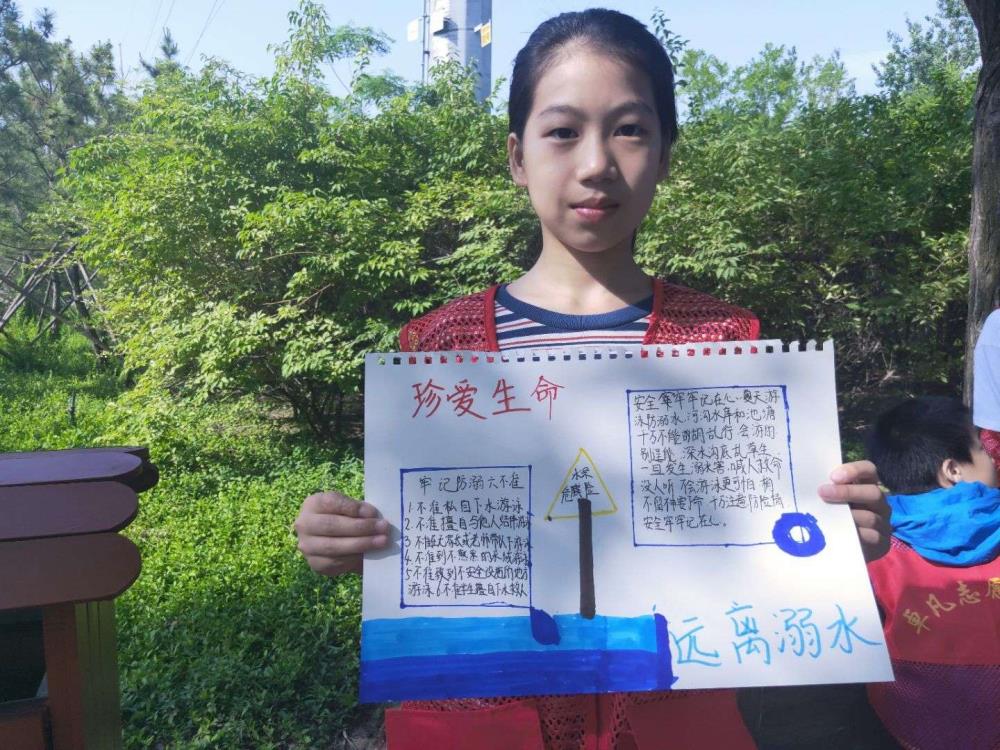 珍爱生命
牢记防溺六不准
1.不准私自下水游泳
2.不准擅自与他人结伴游泳
3.不准在无家长或老师带队下游泳
4.不准到不熟悉的水域游泳
5不准到不安全设施的地方
游泳6不准学生擅自下水
水深
危险
安全牢牢牢记在心,夏天游
泳防溺水,河沟水库和池塘
千万不能胡乱行 会游的
别逞能 深水沟底乱草生
一旦发生溺水害,喊人救命
没人听 不会游泳更可怕 稍
不留神要了命 千万注意防险情
安全牢牢记在心。
远离溺水
卓凡志愿